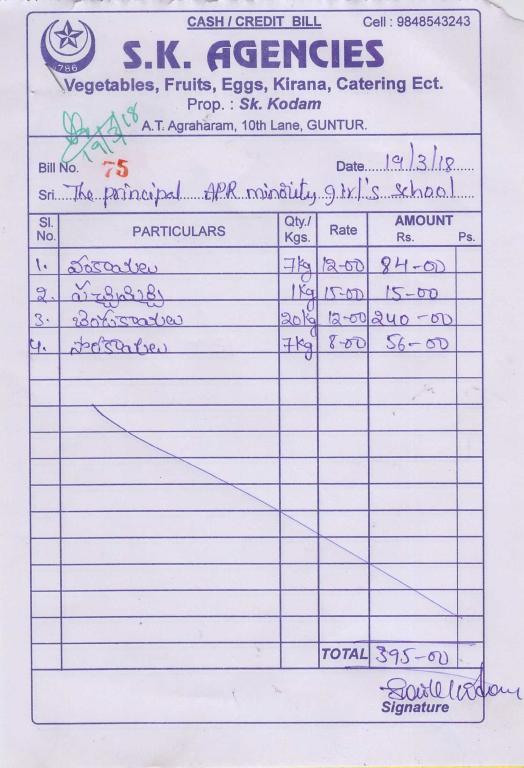 CASH / CREDIT BILL Cell : 9848543243
786
S.K. AGENCIES
Vegetables, Fruits, Eggs, Kirana, Catering Ect.
Prop. : Sk. Kodam
A.T. Agraharam, 10th Lane, GUNTUR.
19/3/18
Bill No. 75 Date 19/3/18
Sri. The principal APR minority girl's school
Sl. No. PARTICULARS Qty./ Kgs. Rate AMOUNT Rs. Ps.
1. వంకాయలు 7kg 12-00 84-00
2. పచ్చిమిర్చి 1kg 15-00 15-00
3. 20kg 12-00 240-00
4. 7kg 8-00 56-00
TOTAL 395-00
Signature